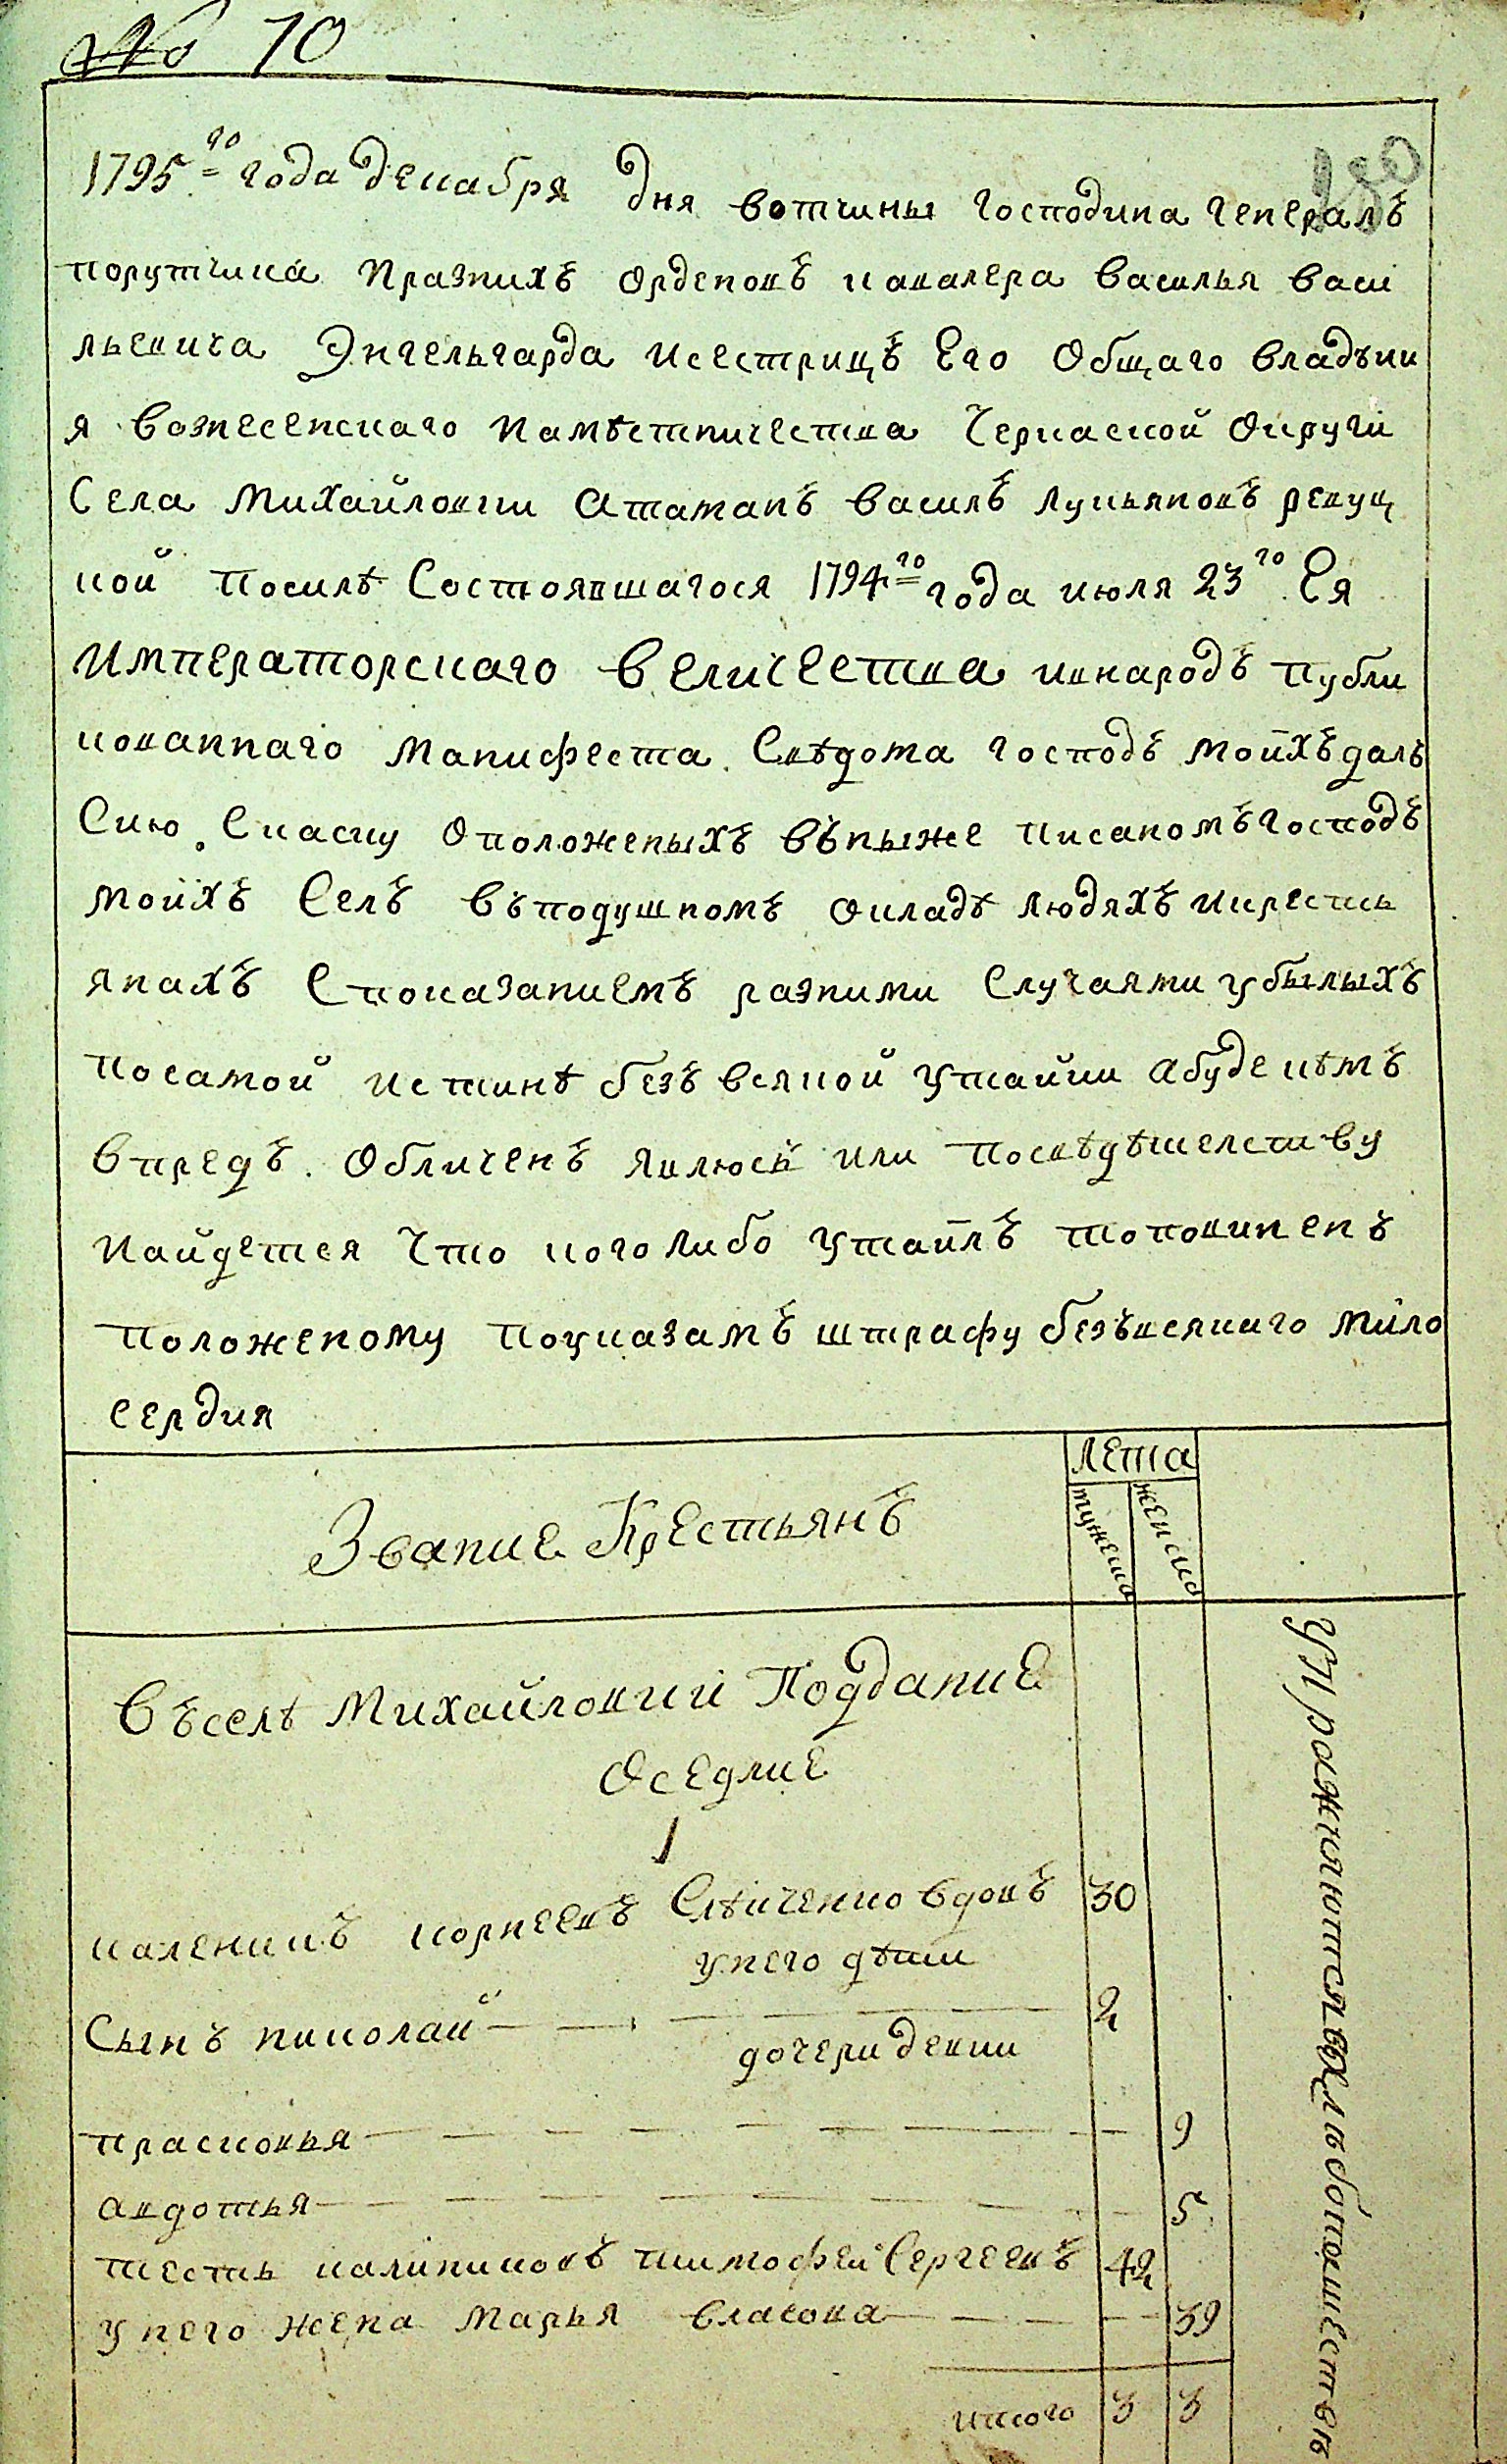 № 10
1795го года декабря дня вотчины господина генералъ
порутчика и разнихъ орденовъ кавалера василья васи
льевича Энгельгарда исестрицъ Его Общаго владѣни
я вознесенскаго намѣстничества Черкаской округи
Села михайловки атаманъ василъ лукьяновъ ревуц
кой посилѣ Состоявшагося 1794го года июля 23го Ея
императорскаго величества ивнародъ публи
кованнаго манифеста. Свѣдома господъ моихъ далъ
Сию Скаску Оположеныхъ въныже писаномъ господъ
моихъ Селъ въподушномъ окладѣ людяхъ икресть
янахъ Споказаниемъ разними Случаями убылыхъ
посамой истинѣ безъ всякой утайки абуде кѣмъ
впредъ. Обличенъ явлюсь или посвѣдѣтелству
найдется Что коголибо утаилъ то повиненъ
положеному поуказамъ штрафу безъвсякаго мило
сердия
лета
Звание Крестьянъ
мужеска
женска
Въселѣ Михайловки Поддание
оседлие
1
каленикъ корнеевъ Слѣченко вдовъ 30
унего дѣти
Сынъ николай 2
дочери девки
прасковья 9
авдотья 5
тесть калиниковъ тимофей Сергеевъ 42
унего жена марья власова 39
итого 3 3
упражняются въхлѣбопашествѣ